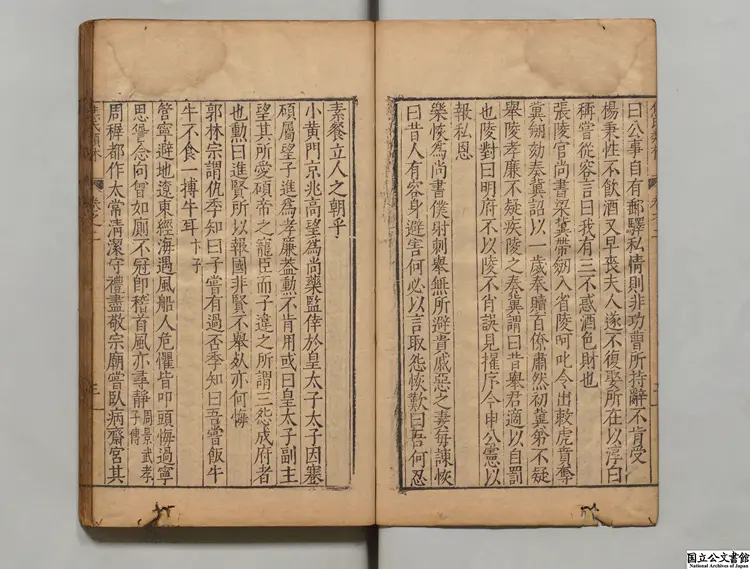 曰公事自有郵驛私情則非功曹所持辭不肯受
楊秉性不飲酒又早喪夫人遂不復娶所在以淳白
稱嘗從容言曰我有三不惑酒色財也
張陵官尚書梁冀帶劒入省陵呵叱令出敕虎賁奪
冀劒劾奏冀詔以一歲奉贖百僚肅然初冀弟不疑
舉陵孝廉不疑疾陵之奏冀謂曰昔舉君適以自罰
也陵對曰明府不以陵不肖誤見擢序今申公憲以
報私恩
樂恢為尚書僕射刺舉無所避貴戚惡之妻每諫恢
曰昔人有容身避害何必以言取怨恢歎曰吾何忍
素餐立人之朝乎
小黄門京兆高望為尚藥監倖於皇太子太子因蹇
碩屬望子進為孝廉蓋勲不肯用或曰皇太子副主
望其所愛碩帝之寵臣而子違之所謂三怨成府者
也勲曰進賢所以報國非賢不舉死亦何悔
郭林宗謂仇季知曰子嘗有過否季知曰吾嘗飯牛
牛不食一搏牛耳 卞子
管寧避地遼東經海遇風船人危懼皆叩頭悔過寧
思愆念向曾如廁不冠即稽首風亦尋靜 周景武孝子傳
周稺都作太常清潔守禮盡敬宗廟嘗臥病齋宮其
卷之二
三
国立公文書館
National Archives of Japan